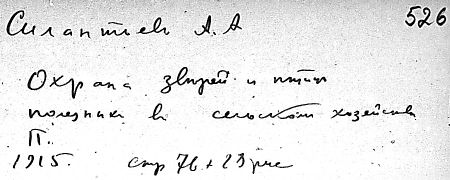 Силантьев А.А 526
Охрана зверей и птиц
полезных в сельском хозяйстве
П.
1915. стр 76 + 23 рис